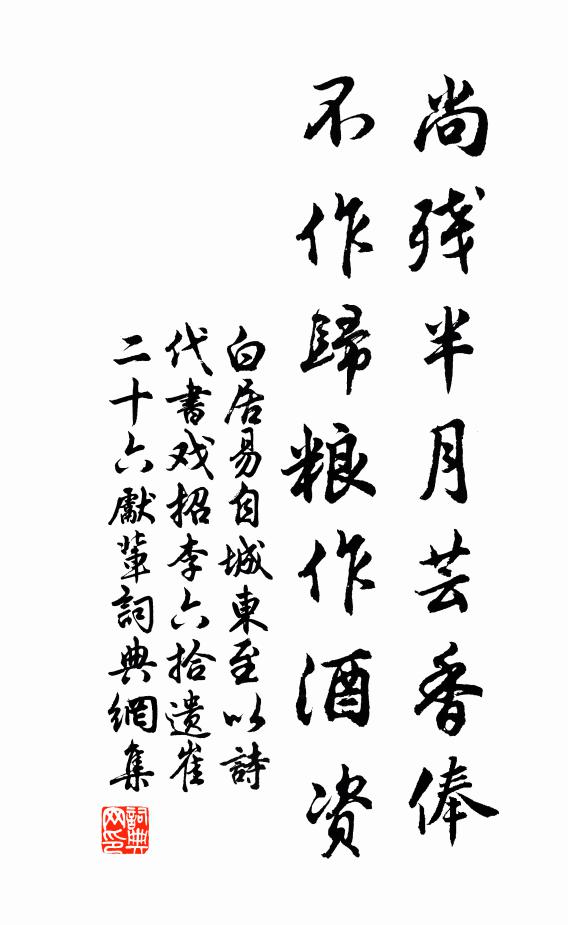 尚残半月芸香俸
不作歸粮作酒资
白居易自城東至以詩
代書戏招李六拾遗崔
二十六獻輩詞典網集
詞典
网印